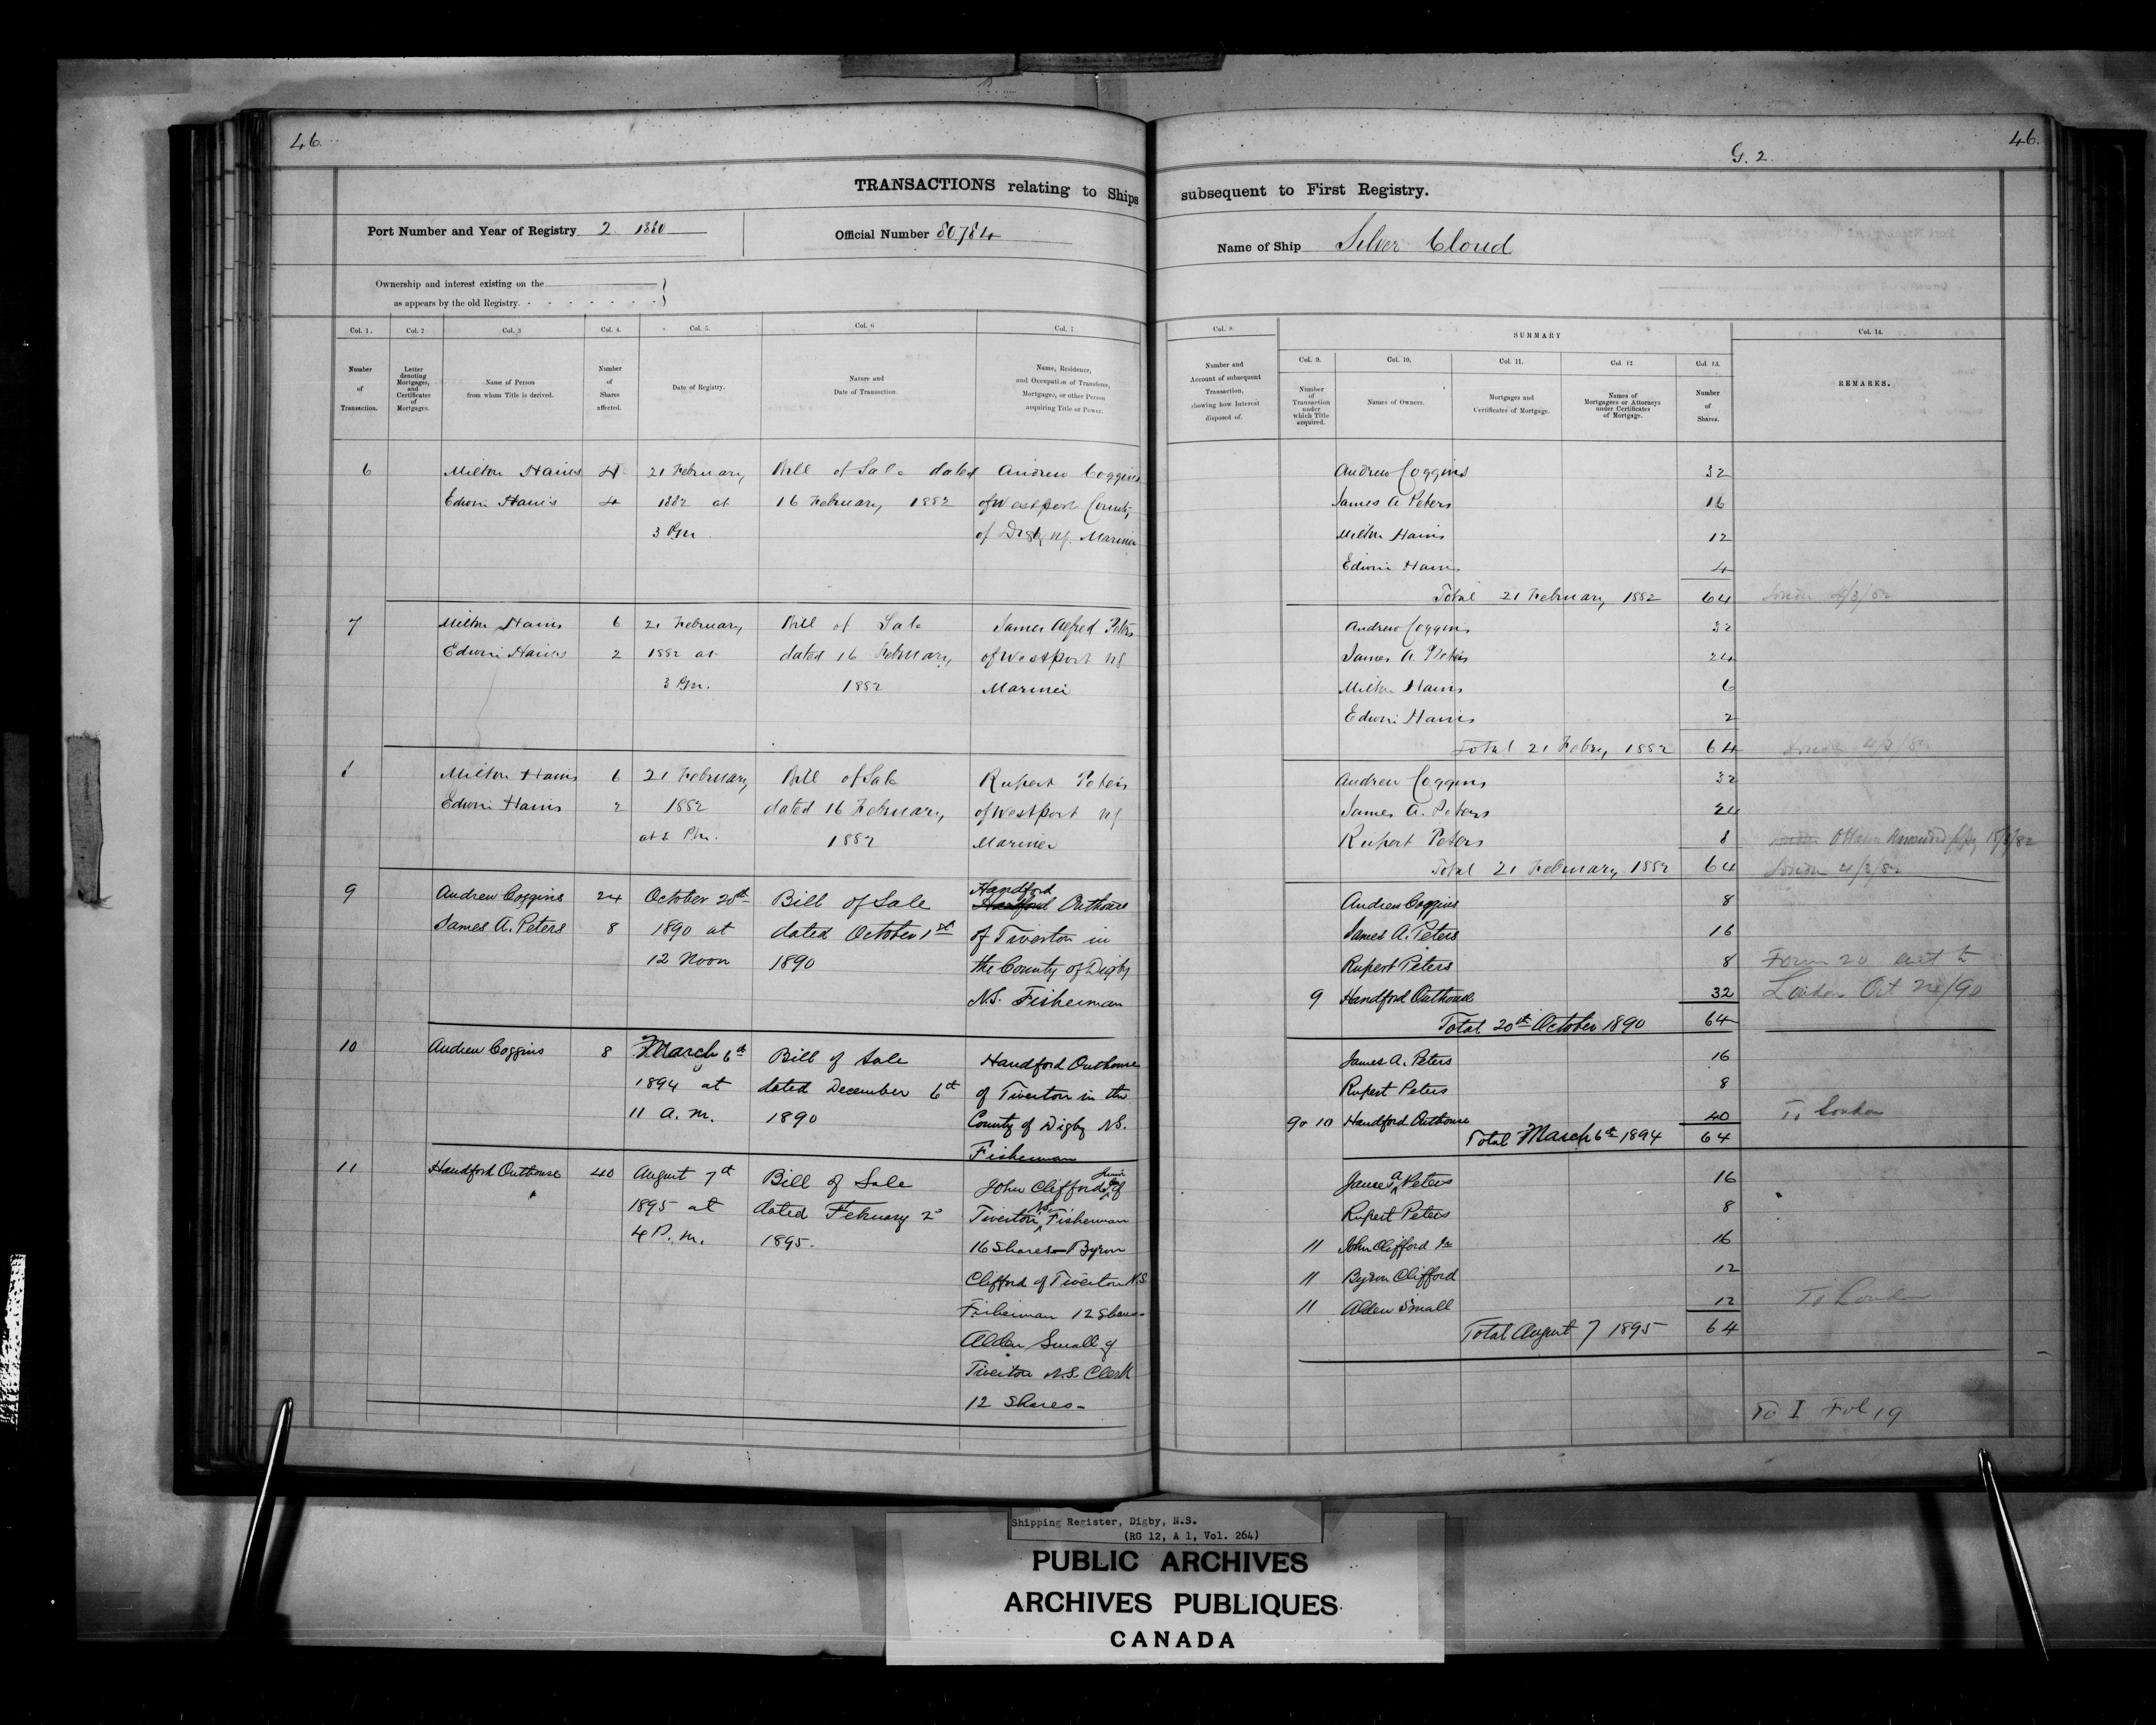 46
TRANSACTIONS relating to Ships
Port Number and Year of Registry 2. 1880
Official Number 80784
Ownership and interest existing on the
as appears by the old Registry.
Col. 1.
Col. 2
Col. 3
Col. 4.
Col. 5.
Col. 6
Col. 7
Number
of
Transaction.
Letter
denoting
Mortgages,
and
Certificates
of
Mortgages.
Name of Person
from whom Title is derived.
Number
of
Shares
affected.
Date of Registry.
Nature and
Date of Transaction.
Name, Residence,
and Occupation of Transferee,
Mortgagee, or other Person
acquiring Title or Power.
6 Milton Haines 4 21 February, Bill of Sale dated Andrew Coggins
Edwin Haines 4 1882 at 16 February, 1882 of Westport County
3 Pm of Digby NS. Mariner
7 Milton Haines 6 21 February, Bill of Sale James Alfred Peters
Edwin Haines 2 1882 at dated 16 February, of Westport NS
3 Pm. 1882 Mariner
8 Milton Haines 6 21 February, Bill of Sale Rupert Peters
Edwin Haines 2 1882 dated 16 February, of Westport NS
at 3 Pm. 1882 Mariner
9 Andrew Coggins 24 October 20th Bill of Sale Handford Outhouse
James A. Peters 8 1890 at dated October 1st of Tiverton in
12 Noon 1890 the County of Digby
N.S. Fisherman
10 Andrew Coggins 8 March 6th Bill of Sale Handford Outhouse
1894 at dated December 6th of Tiverton in the
11 a.m. 1890 County of Digby N.S.
Fisherman
11 Handford Outhouse 40 August 7th Bill of Sale John Clifford Junior of
1895 at dated February 2d Tiverton N.S. Fisherman
4 P.m. 1895. 16 Shares - Byron
Clifford of Tiverton N.S
Fisherman 12 Shares -
Alden Small of
Tiverton N.S. Clerk
12 Shares -
G. 2.
46.
subsequent to First Registry.
Name of Ship Silver Cloud
Col. 8.
SUMMARY
Col. 14.
Col. 9.
Col. 10.
Col. 11.
Col. 12
Col. 13.
Number and
Account of subsequent
Transaction,
showing how Interest
disposed of.
Number
of
Transaction
under
which Title
acquired.
Names of Owners.
Mortgages and
Certificates of Mortgage.
Names of
Mortgagees or Attorneys
under Certificates
of Mortgage.
Number
of
Shares.
REMARKS.
Andrew Coggins 32
James A Peters 16
Milton Haines 12
Edwin Haines 4
Total 21 February, 1882 64 London 4/3/82
Andrew Coggins 32
James A. Peters 24
Milton Haines 6
Edwin Haines 2
Total 21 Febry, 1882 64 London 4/3/82
Andrew Coggins 32
James A. Peters 24
Rupert Peters 8 Ottawa
Total 21 February, 1882 64 London 4/3/82
Andrew Coggins 8
James A. Peters 16
Rupert Peters 8 Form 20 sent to
9 Handford Outhouse 32 London Oct /90
Total 20th October 1890 64
James A. Peters 16
Rupert Peters 8
9 & 10 Handford Outhouse 40 To London
Total March 6th 1894 64
James A Peters 16
Rupert Peters 8
11 John Clifford Jr 16
11 Byron Clifford 12
11 Alden Small 12 To London
Total August 7 1895 64
To I Fol 19
Shipping Register, Digby, N.S.
(RG 12, A 1, Vol. 264)
PUBLIC ARCHIVES
ARCHIVES PUBLIQUES
CANADA